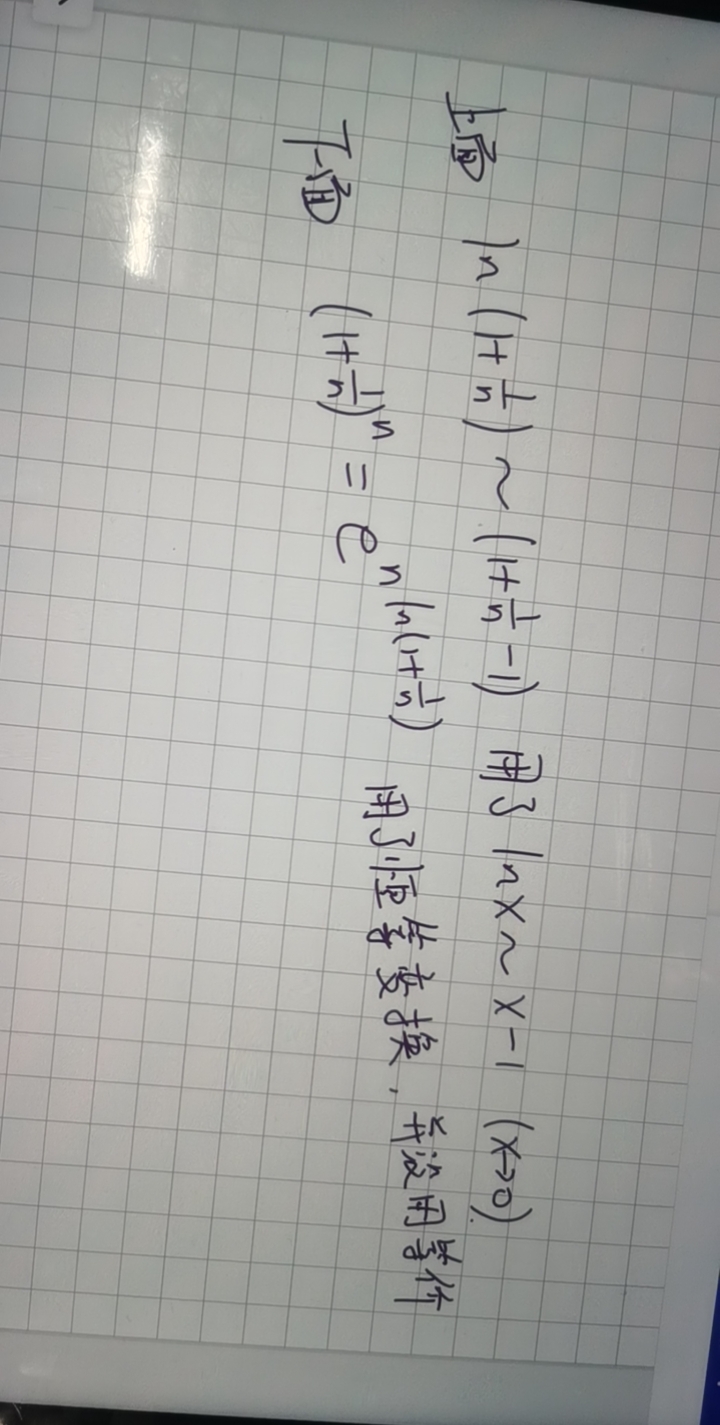 上面 ln(1+1/n) ~ (1+1/n-1) 用了 lnx~x-1 (x→0)
下面 (1+1/n)^n = e^{n ln(1+1/n)} 用了恒等变换，并没用等价